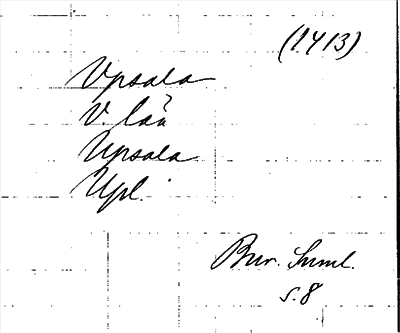 (1413)
Vpsala
V. län
Upsala
Upl.
Bur. Suml.
s. 8